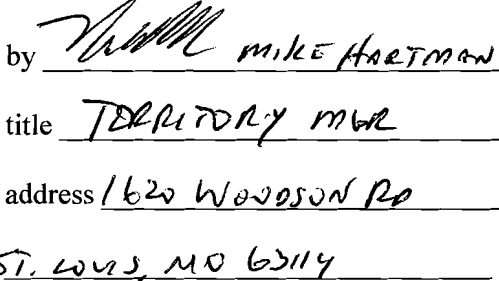 by MIKE HARTMAN
title TERRITORY MGR
address 1620 WOODSON RD
ST. LOUIS, MO 63114